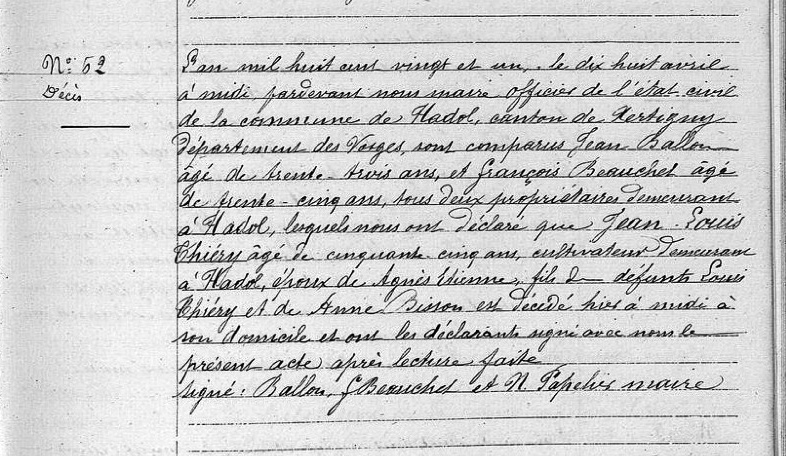 N° 52
Décès
L'an mil huit cent vingt et un, le dix huit avril
à midi pardevant nous maire officier de l'état civil
de la commune de Hadol, canton de Xertigny
Département des Vosges, sont comparus Jean Ballon
âgé de trente-trois ans, et François Beauchet âgé
de trente-cinq ans, tous deux propriétaires demeurant
à Hadol, lesquels nous ont déclaré que Jean-Louis
Thiéry âgé de cinquante cinq ans, cultivateur demeurant
à Hadol, époux de Agnès Etienne, fils de défunts Louis
Thiéry et de Anne Bisson est décédé hier à midi à
son domicile et ont les déclarants signé avec nous le
présent acte après lecture faite
signé: Ballon, f Beauchet et N. Papelier maire